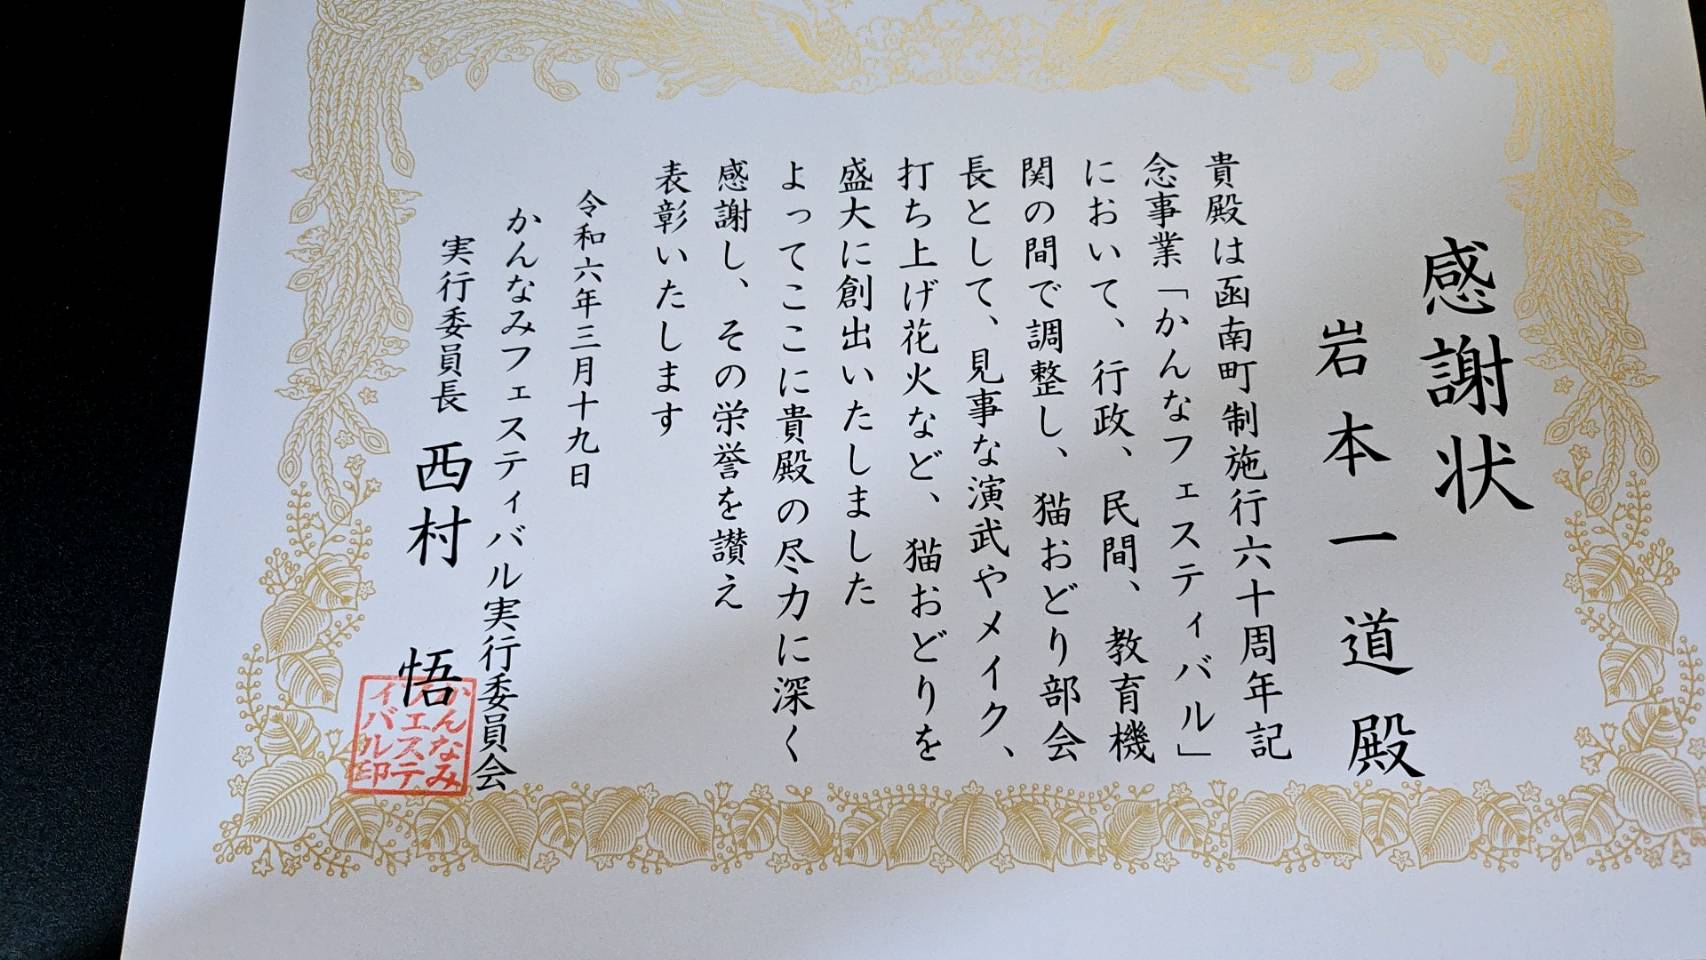 感謝状
岩本一道殿
貴殿は函南町制施行六十周年記
念事業「かんなフェスティバル」
において、行政、民間、教育機
関の間で調整し、猫おどり部会
長として、見事な演武やメイク、
打ち上げ花火など、猫おどりを
盛大に創出いたしました
よってここに貴殿の尽力に深く
感謝し、その栄誉を讃え
表彰いたします
令和六年三月十九日
かんなみフェスティバル実行委員会
実行委員長 西村 悟
かんなみ
フェステ
ィバル印